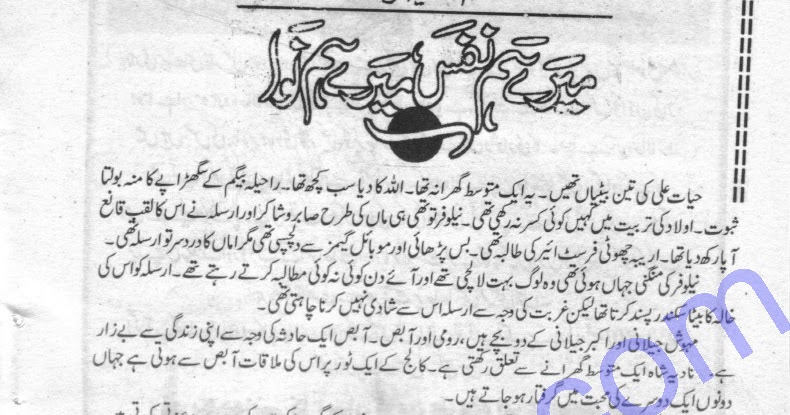 میرے ہم نفس میرے ہم نوا
حیات علی کی تین بیٹیاں تھیں۔ یہ ایک متوسط گھرانہ تھا۔ اللہ کا دیا سب کچھ تھا۔ راحیلہ بیگم کے سگھڑاپے کا منہ بولتا
ثبوت۔ اولاد کی تربیت میں کہیں کوئی کسر نہ رکھی تھی۔ نیلوفر تو تھی ہی ماں کی طرح صابر و شاکر اور ارسلہ نے اس کا لقب قانع
آپا رکھ دیا تھا۔ اریبہ چھوٹی فرسٹ ائیر کی طالبہ تھی۔ بس پڑھائی اور موبائل گیمز سے دلچسپی تھی مگر اماں کا درد سر تو ارسلہ تھی۔
نیلوفر کی منگنی جہاں ہوئی تھی وہ لوگ بہت لالچی تھے اور آئے دن کوئی نہ کوئی مطالبہ کرتے رہتے تھے۔ ارسلہ کو اس کی
خالہ کا بیٹا سکندر پسند کرتا تھا لیکن غربت کی وجہ سے ارسلہ اس سے شادی نہیں کرنا چاہتی تھی۔
مہوش جیلانی اور اکبر جیلانی کے دو بچے ہیں، رومی اور آبص۔ آبص ایک حادثہ کی وجہ سے اپنی زندگی سے بے زار
ہے۔ نادیہ شاہ ایک متوسط گھرانے سے تعلق رکھتی ہے۔ کالج کے ایک ٹور پر اس کی ملاقات آبص سے ہوئی ہے جہاں
دونوں ایک دوسرے کی محبت میں گرفتار ہو جاتے ہیں۔
com